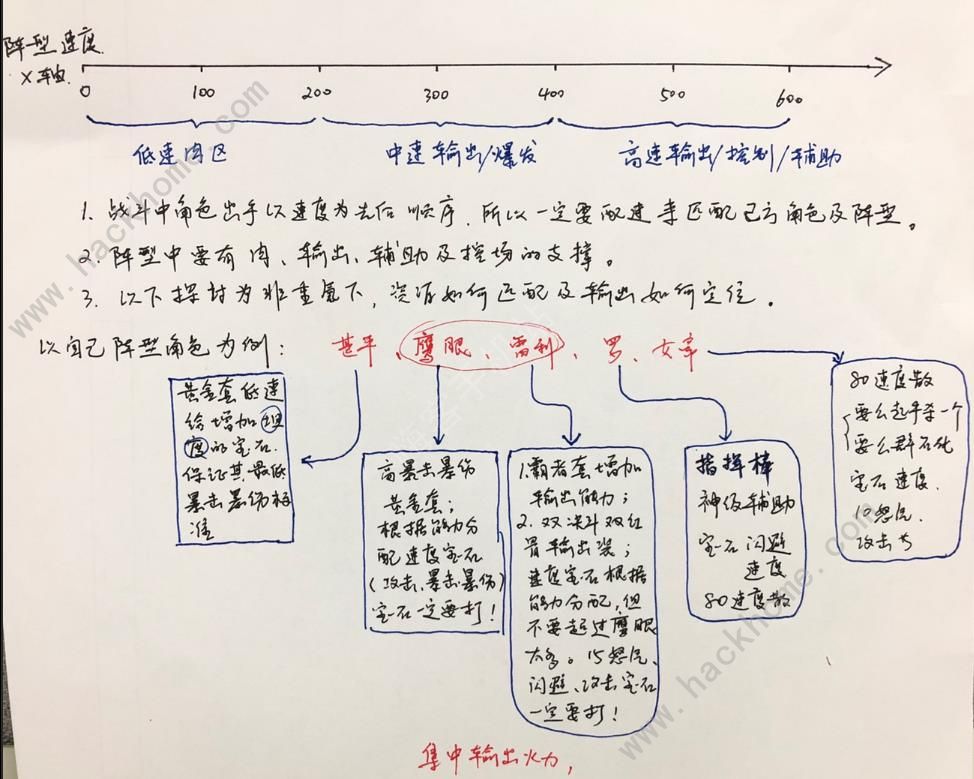 阵型速度
X轴
0 100 200 300 400 500 600
低速肉区 中速输出/爆发 高速输出/控制/辅助
1. 战斗中角色出手以速度为先后顺序，所以一定要配速来匹配己方角色及阵型。
2. 阵型中要有肉、输出、辅助及控场的支撑。
3. 以下探讨为非重氪下，资源如何匹配及输出如何定位。
以自己阵型角色为例：甚平、鹰眼、雷利、罗、女帝
黄金套低速
给增加坦
度的宝石.
保证其最低
暴击暴伤标
准
高暴击暴伤
黄金套；
根据能力分
配速度宝石
(攻击、暴击暴伤)
宝石一定要打！
1.霸者套增加
输出能力；
2. 双决斗双红
骨输出装；
速度宝石根据
能力分配,但
不要超过鹰眼
太多。15怒气、
闪避、攻击宝石
一定要打！
指挥棒
神级辅助
宝石闪避
速度
80速度散
80速度散
要么起手杀一个
要么群石化
宝石速度.
10怒气.
攻击
集中输出火力，
www.hackhome.com
www.hackhome.com